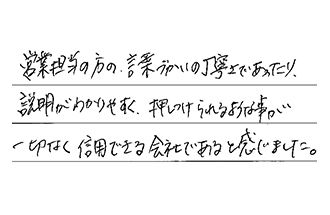 営業担当の方の、言葉づかいの丁寧さであったり、
説明がわかりやすく、押しつけられるような事が
一切なく信用できる会社であると感じました。